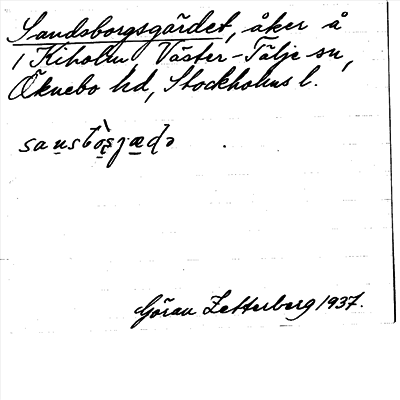 Sandsborgsgärdet, åker å
1 Kiholm Väster-Tälje sn,
Öknebo hd, Stockholms l.
Göran Zetterberg 1937.